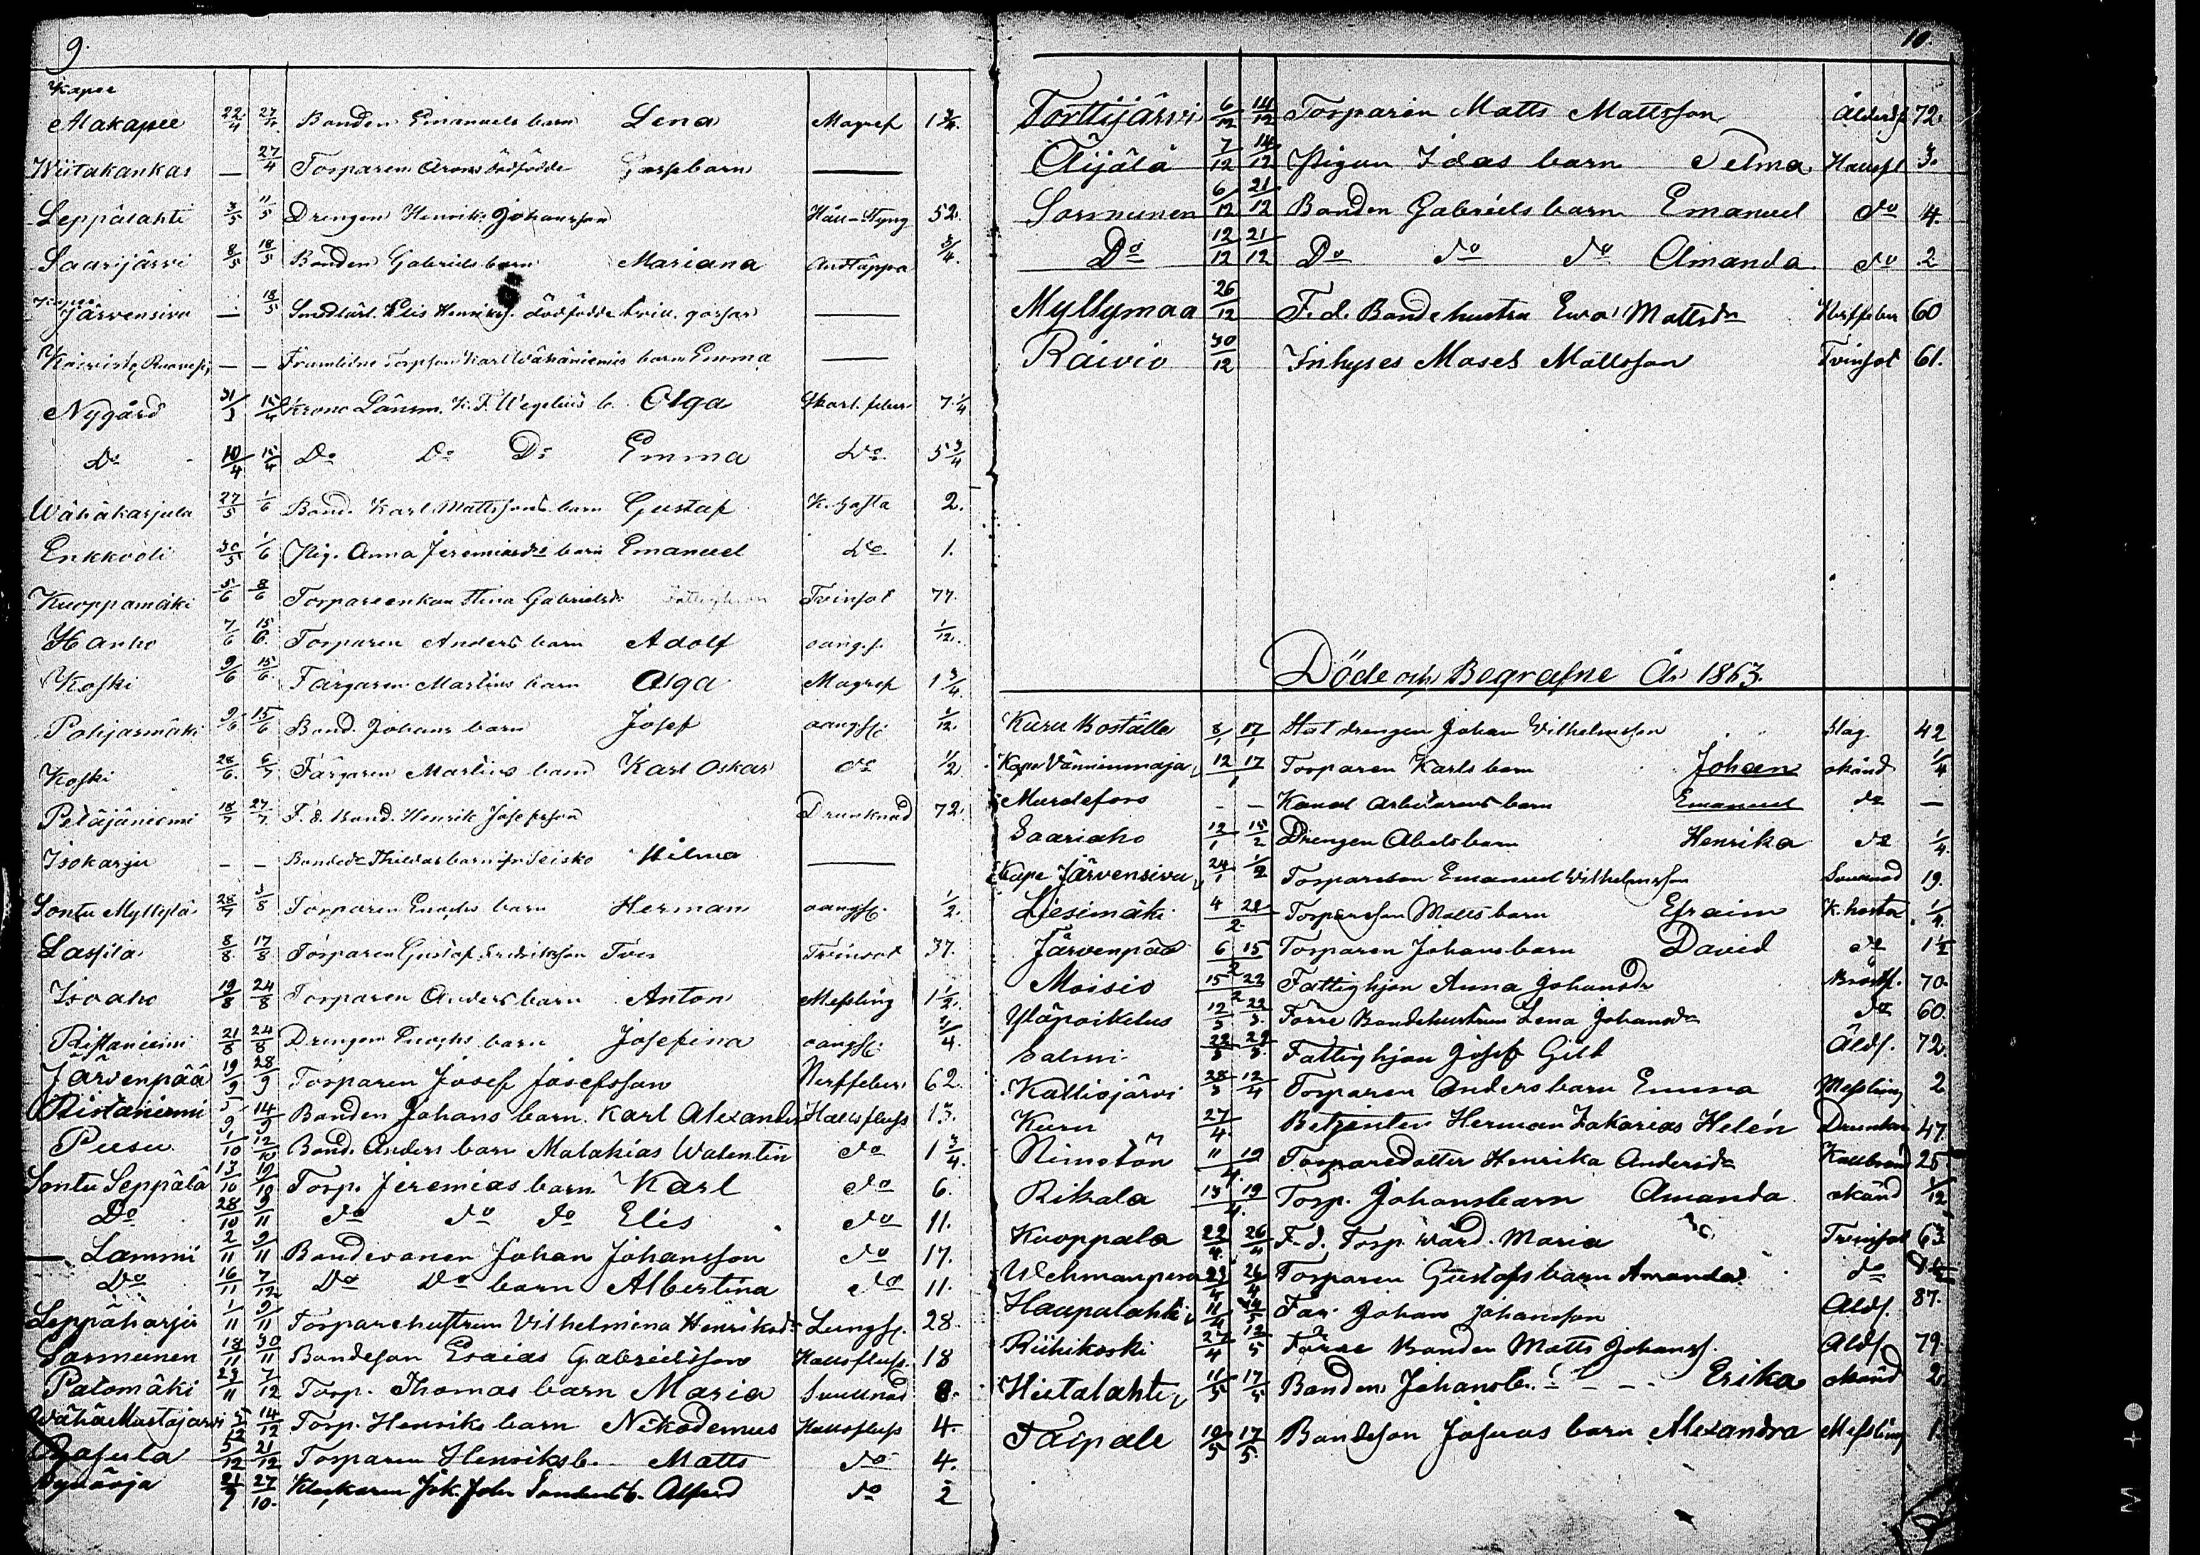 9.
Kapee
Alakapee 22/4 27/4 Bonden Emanuels barn Lena Magref 1 3/4.
Wiitakankas — 27/4 Torparen Arons dödfödde Gossebarn —
Leppälahti 3/5 11/5 Drengen Henrik Johansson Håll-Styng 52.
Saarijärvi 8/5 18/5 Bonden Gabriels barn Mariana Andtäppa 3/4.
Järvensivu — 18/5 Henrikss. dödfödde tvill. gossar —
— — Framlidne Torpson Karl Wähäniemis barn Emma —
Nygård 31/3 15/4 Krono Länsm. K. F. Wegelius b. Olga Skarl. feber 7 1/4
Do 10/4 15/4 Do Do Do Emma Do 5 3/4
Wähäkarjula 27/5 1/6 Bond. Karl Mattssons barn Gustaf K. hosta 2.
Enkkooli 30/5 1/6 Pig. Anna Jeremiasdr barn Emanuel Do 1.
Kuoppamäki 5/6 8/6 Torpareenkan Stina Gabrielsdr Tvinsot 77.
Hanho 7/6 15/6 Torparen Anders barn Adolf oangif. 1/12.
Koski 9/6 15/6 Färgaren Martins barn Olga Magref 1 3/4.
Pohjasmäki 9/6 15/6 Bond. Johans barn Josef oangif. 1/12.
Koski 28/6. 6/7 Färgaren Martins barn Karl Oskar do 1/2
Petäjäniemi 18/7 27/7 F. d. Bond. Henrik Josefsson Drunknad 72.
Isokarju — — barn fr Seisko Hilma —
Sontu Myllylä 28/7 3/8 Torparen Enochs barn Herman oangif. 1/2.
Lassila 8/8. 17/8 Torparen Gustaf Fredriksson Tvinsot 37.
Isoaho 19/8 24/8 Torparen Anders barn Anton Messling 1 1/2.
Ristaniemi 21/8 24/8 Drengen Enochs barn Josefina oangif. 3/4.
Järvenpää 19/9 28/9 Torparen Josef Josefsson Nerffeber 62.
Ristaniemi 5/9 14/9 Bonden Johans barn Karl Alexander Halsfluss 13.
Pusu 1/10 12/10 Bond. Anders barn Malakias Walentin do 1 3/4.
Sontu Seppälä 13/10 19/10 Torp. Jeremias barn Karl do 6.
Do 28/10 9/11 do do do Elis do 11.
— Lammi 2/11 9/11 Bondesonen Johan Johansson do 17.
Do 16/11 7/12 Do Do barn Albertina do 11.
Leppäharju 1/11 9/11 Torparehustrun Vilhelmina Henriksdr Lungsf. 28.
Sormunen 18/11 30/11 Bondeson Esaias Gabrielsson Halsfluss. 18
Palomäki 23/11 7/12 Torp. Thomas barn Maria Svullnad 8.
Wähä Mustajärvi 5/12 14/12 Torp. Henriks barn Nikodemus Halsfluss 4.
5/12 21/12 Torparen Henriksb. Matts do 4.
27/10. Klockaren Joh. b. Alfred do 2
10.
Torttijärvi 6/12 14/12 Torparen Matts Mattsson Ålderds 72.
Äijälä 7/12 14/12 Pigan Idas barn Selma Halsfl 3.
Sormunen 6/12 21/12 Bonden Gabriels barn Emanuel do 4.
Do 12/12 21/12 Do do do Amanda do 2
Myllymaa 26/12 F. d. Bondehustru Eva Mattsdr Nerffeber 60
Raivio 30/12 Inhyses Moses Mattsson Tvinsot 61.
Döde och Begrafne År 1863.
Kuru Boställe 8/1 17/1 Stat drengen Johan Vilhelmsson Slag. 42
Kapee Vänninmaja 12 17/1 Torparen Karls barn Johan okänd 1/4
Murolefors — — Kanal arbetarens barn Emanuel do —
Saariaho 12/1 15/2 Drengen Abels barn Henrika do 1/4.
Kapee Järvensivu 24/1 1/2 Torpareson Emanuel Vilhelmsson Svullnad 19.
Liesimäki 4 22/2 Torpareson Matts barn Efraim K. hosta 1/4.
Järvenpää 6 15/2 Torparen Johans barn David do 1 1/2
Moisio 15 22/2 Fattighjon Anna Johansdr Bröstf. 70.
Yläpoikelus 12/3 22/3. Förre Bondehustrun Lena Johansdr do 60.
Salmi 22/3 29/3. Fattighjon Josef Gilt Åldf. 72.
Kalliojärvi 28/3 12/4 Torparen Anders barn Emma Messling 2
Kuru 27/4. Betjenten Herman Zakarias Helén Drunkn 47
Niemetön 11 19/4. Torparedotter Henrika Andersdr Kallbrand 25
Rikala 13 19/4. Torp. Johans barn Amanda okänd 1/12
Kuoppala 23/4. 26/4 F. d. Torp. värd. Maria Tvinsot 63
Wehmanpera 23/4 26/4 Torparen Gustafs barn Amanda do
Haapalahti Far Johan Johansson Åldf. 87.
Riihikoski 27/4 12/5 Förre Bonden Matts Johanss. Åldf. 79.
Hietalahti 11/5 17/5 Bonden Johansb. Erika okänd 2.
Taipale 10/5 17/5. Bondeson Josuas barn Alexandra Messling 1.
M +